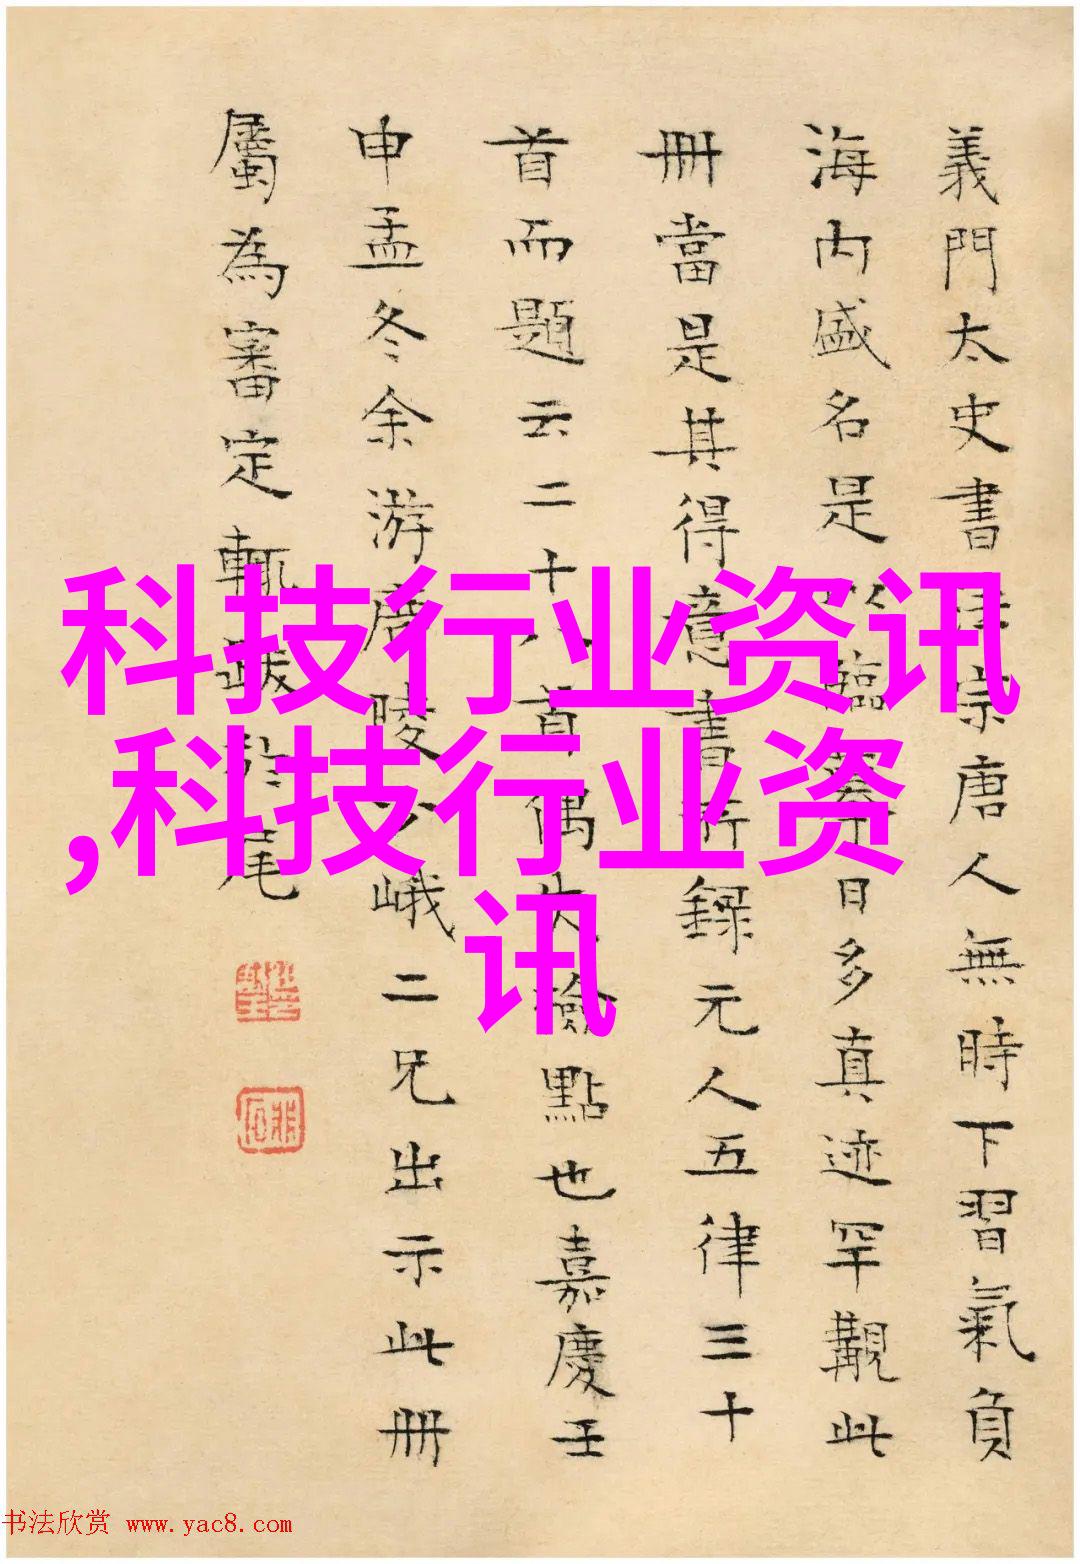 科技行业资讯
,科技行业资
讯
義門太史書宗唐人無時下習氣負
海内盛名是以臨摹日多真迹罕覯此
冊當是其得意書所錄元人五律三十
首而題云二十八首偶失檢點也嘉慶壬
申孟冬余游廣陵少峨二兄出示此冊
屬為審定輒跋於尾
书法欣赏 www.yac8.com